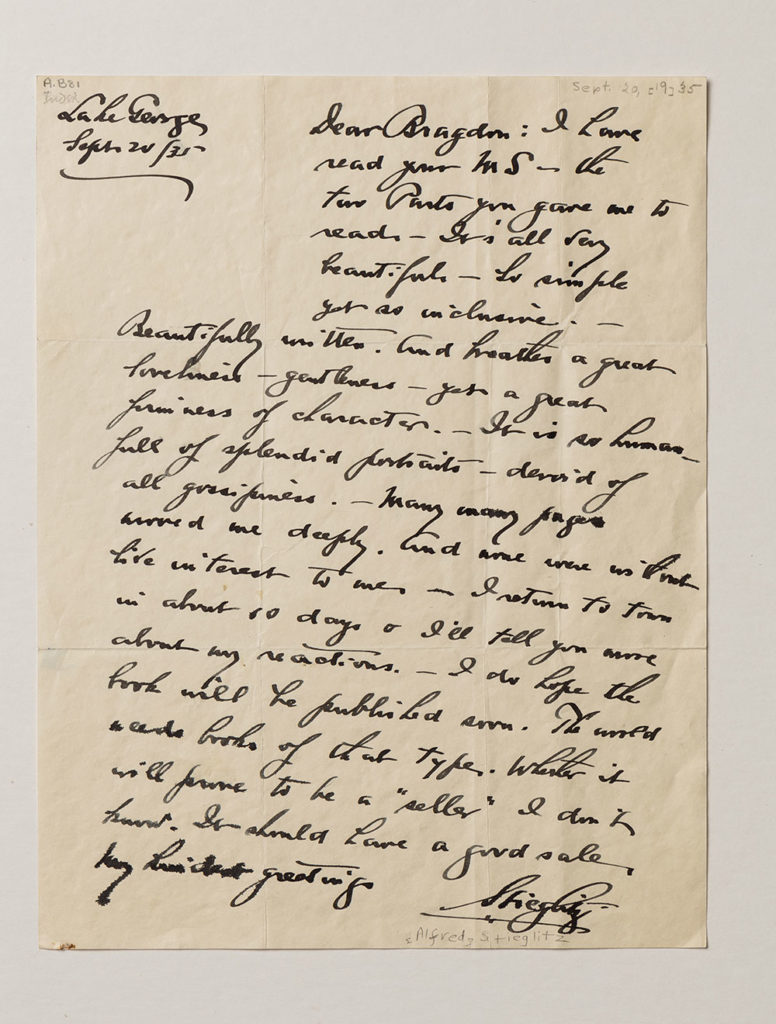 A.B81
Sept. 20, [19]35
Lake George
Sept. 20/35
Dear Bragdon: I have
read your MS — the
two Parts you gave me to
read. — It's all very
beautiful. — So simple
yet so inclusive. —
Beautifully written. And breathes a great
loveliness — gentleness — yet a great
firmness of character. — It is so human —
full of splendid portraits — devoid of
all gossipiness. — Many many pages
moved me deeply. And none were without
live interest to me. — I return to town
in about 10 days & I'll tell you more
about my reactions. — I do hope the
book will be published soon. The world
needs books of that type. Whether it
will prove to be a "seller" I don't
know. It should have a good sale.
My greetings
Stieglitz
[Alfred] Stieglitz